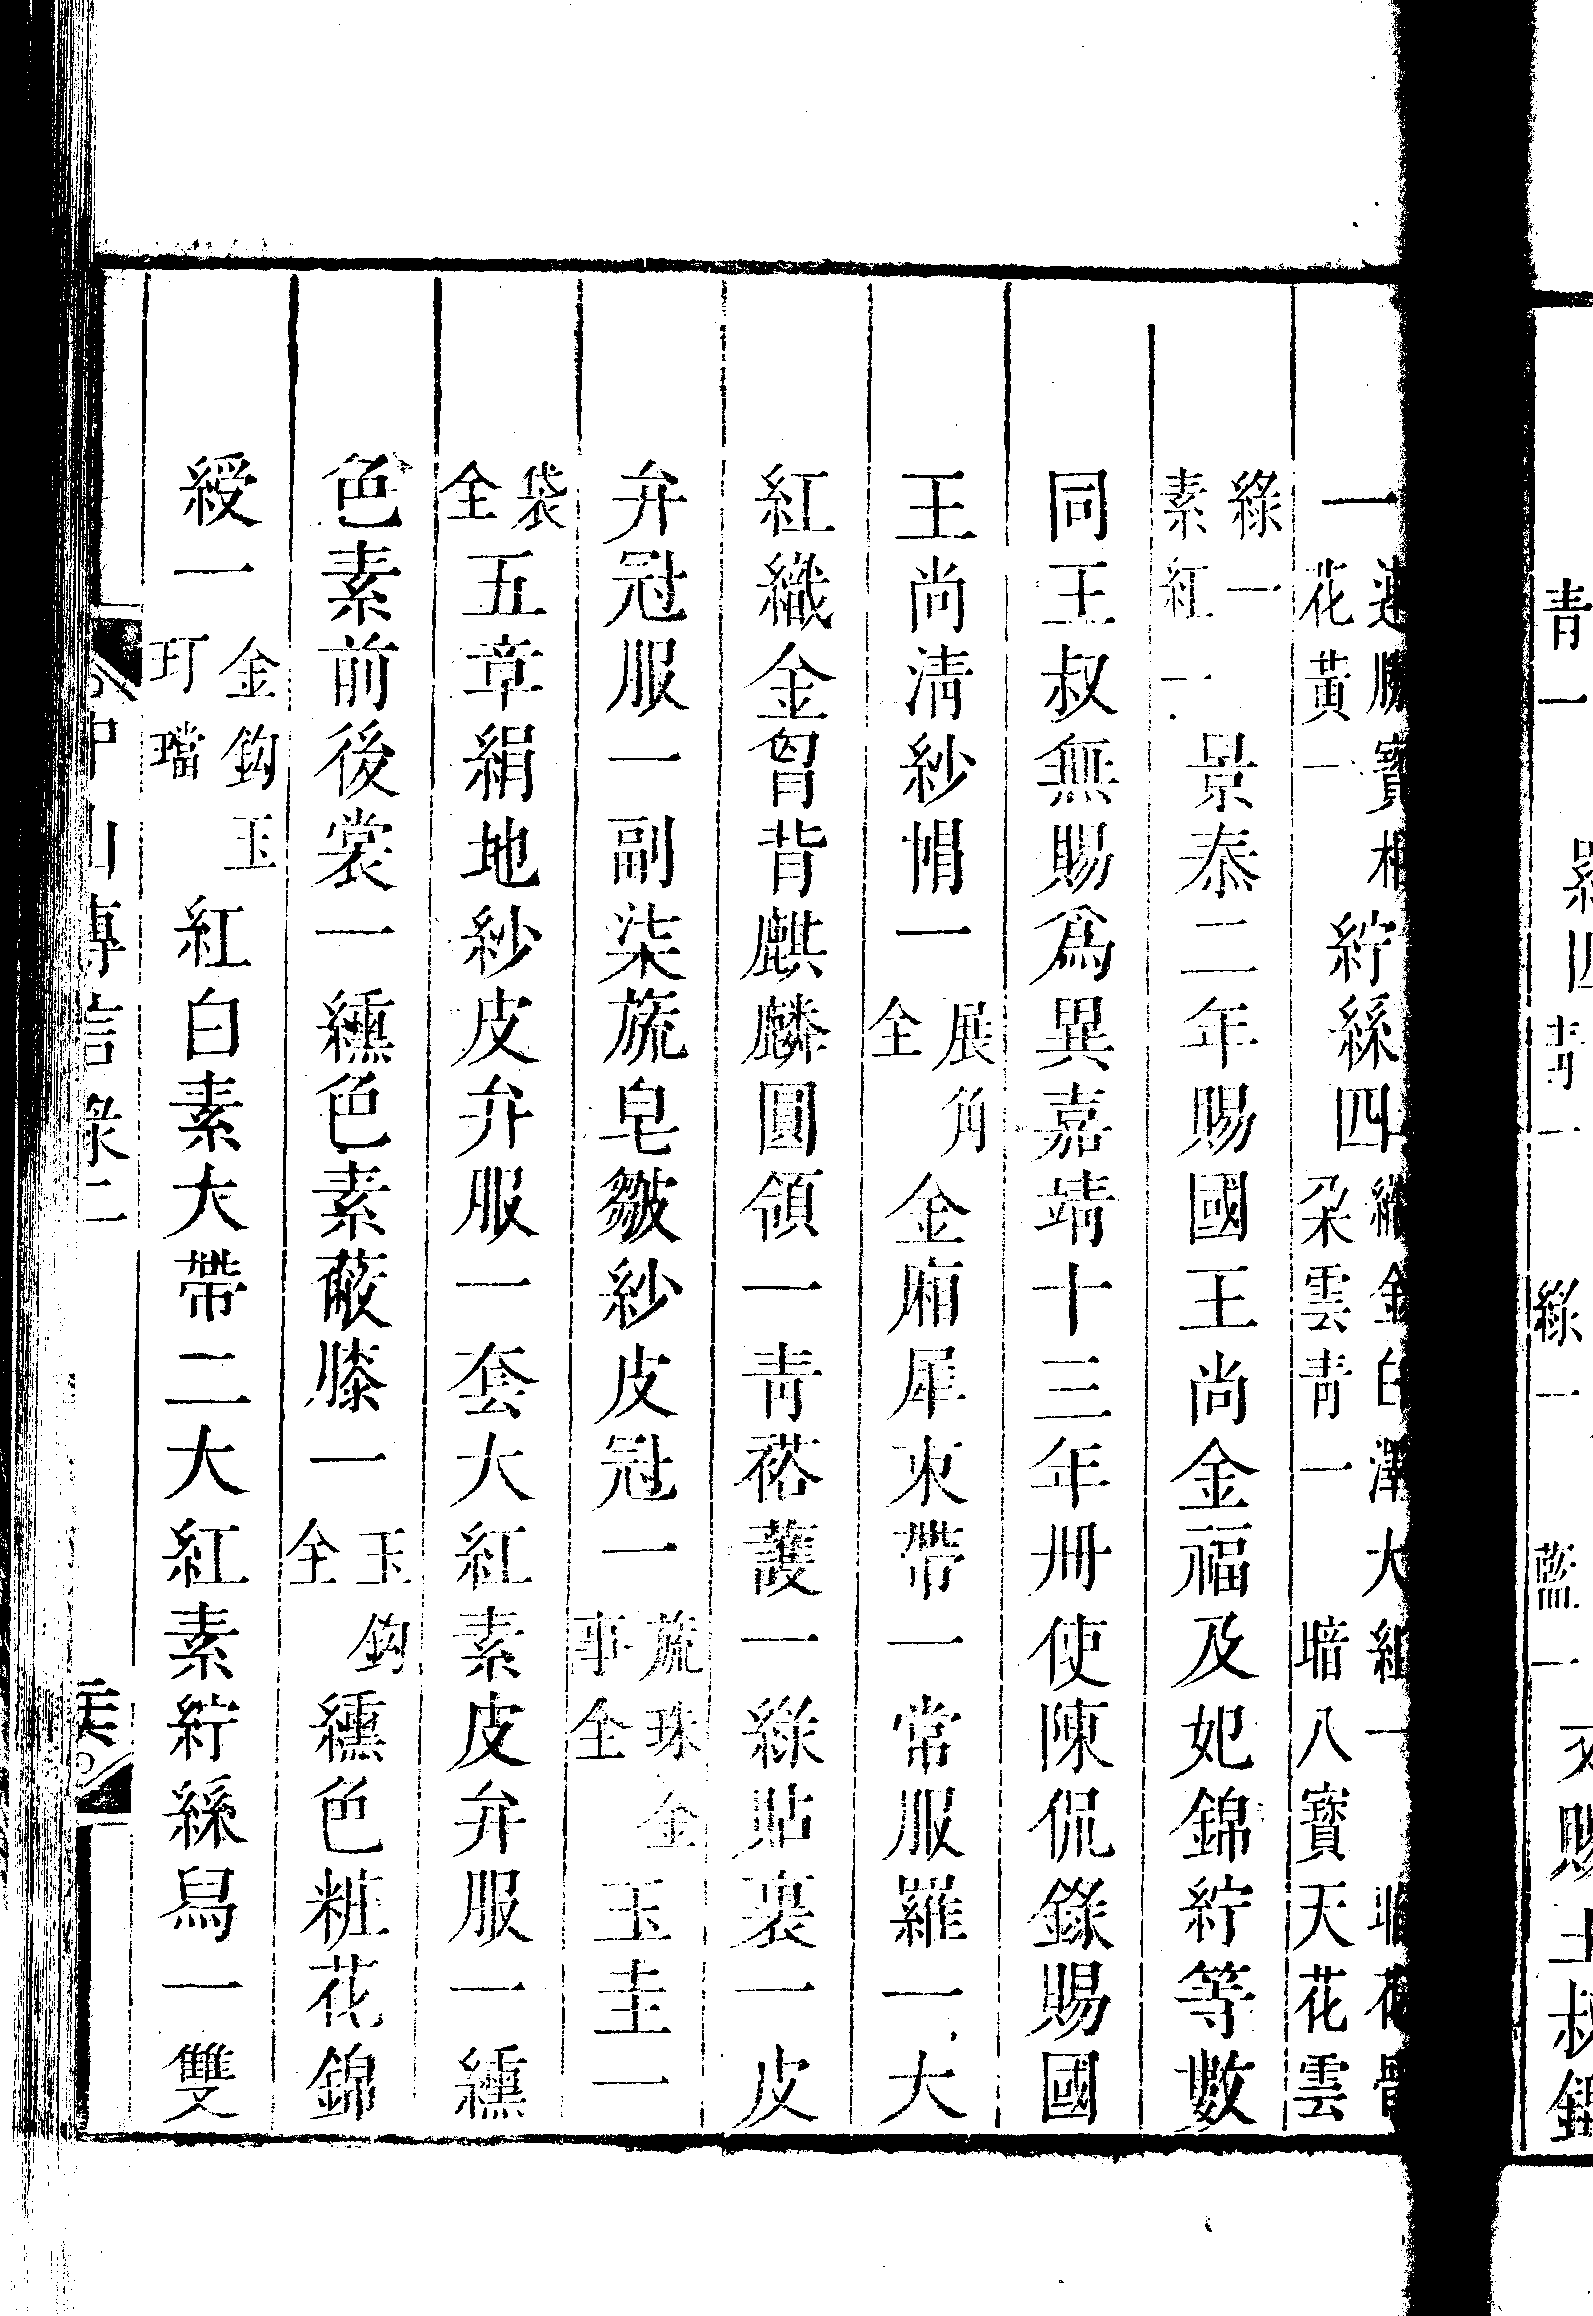 一連勝寶相花黃一紵絲四織金白澤大紅一朵雲青一暗花骨暗八寶天花雲
綠一素紅一景泰二年賜國王尚金福及妃錦紵等數
同王叔無賜爲異嘉靖十三年册使陳侃錄賜國
王尚淸紗㡌一展角全金廂犀束帶一常服羅一大
紅織金胷背麒麟圓領一靑褡䕶一綠貼裏一皮
弁冠服一副柒旒皂皺紗皮冠一旒珠金事全玉圭一
袋全五章絹地紗皮弁服一套大紅素皮弁服一纁
色素前後裳一纁色素蔽膝一玉鈎全纁色粧花錦
綬一金鈎玉玎璫紅白素大帶二大紅素紵絲舃一雙
中山傳信錄二